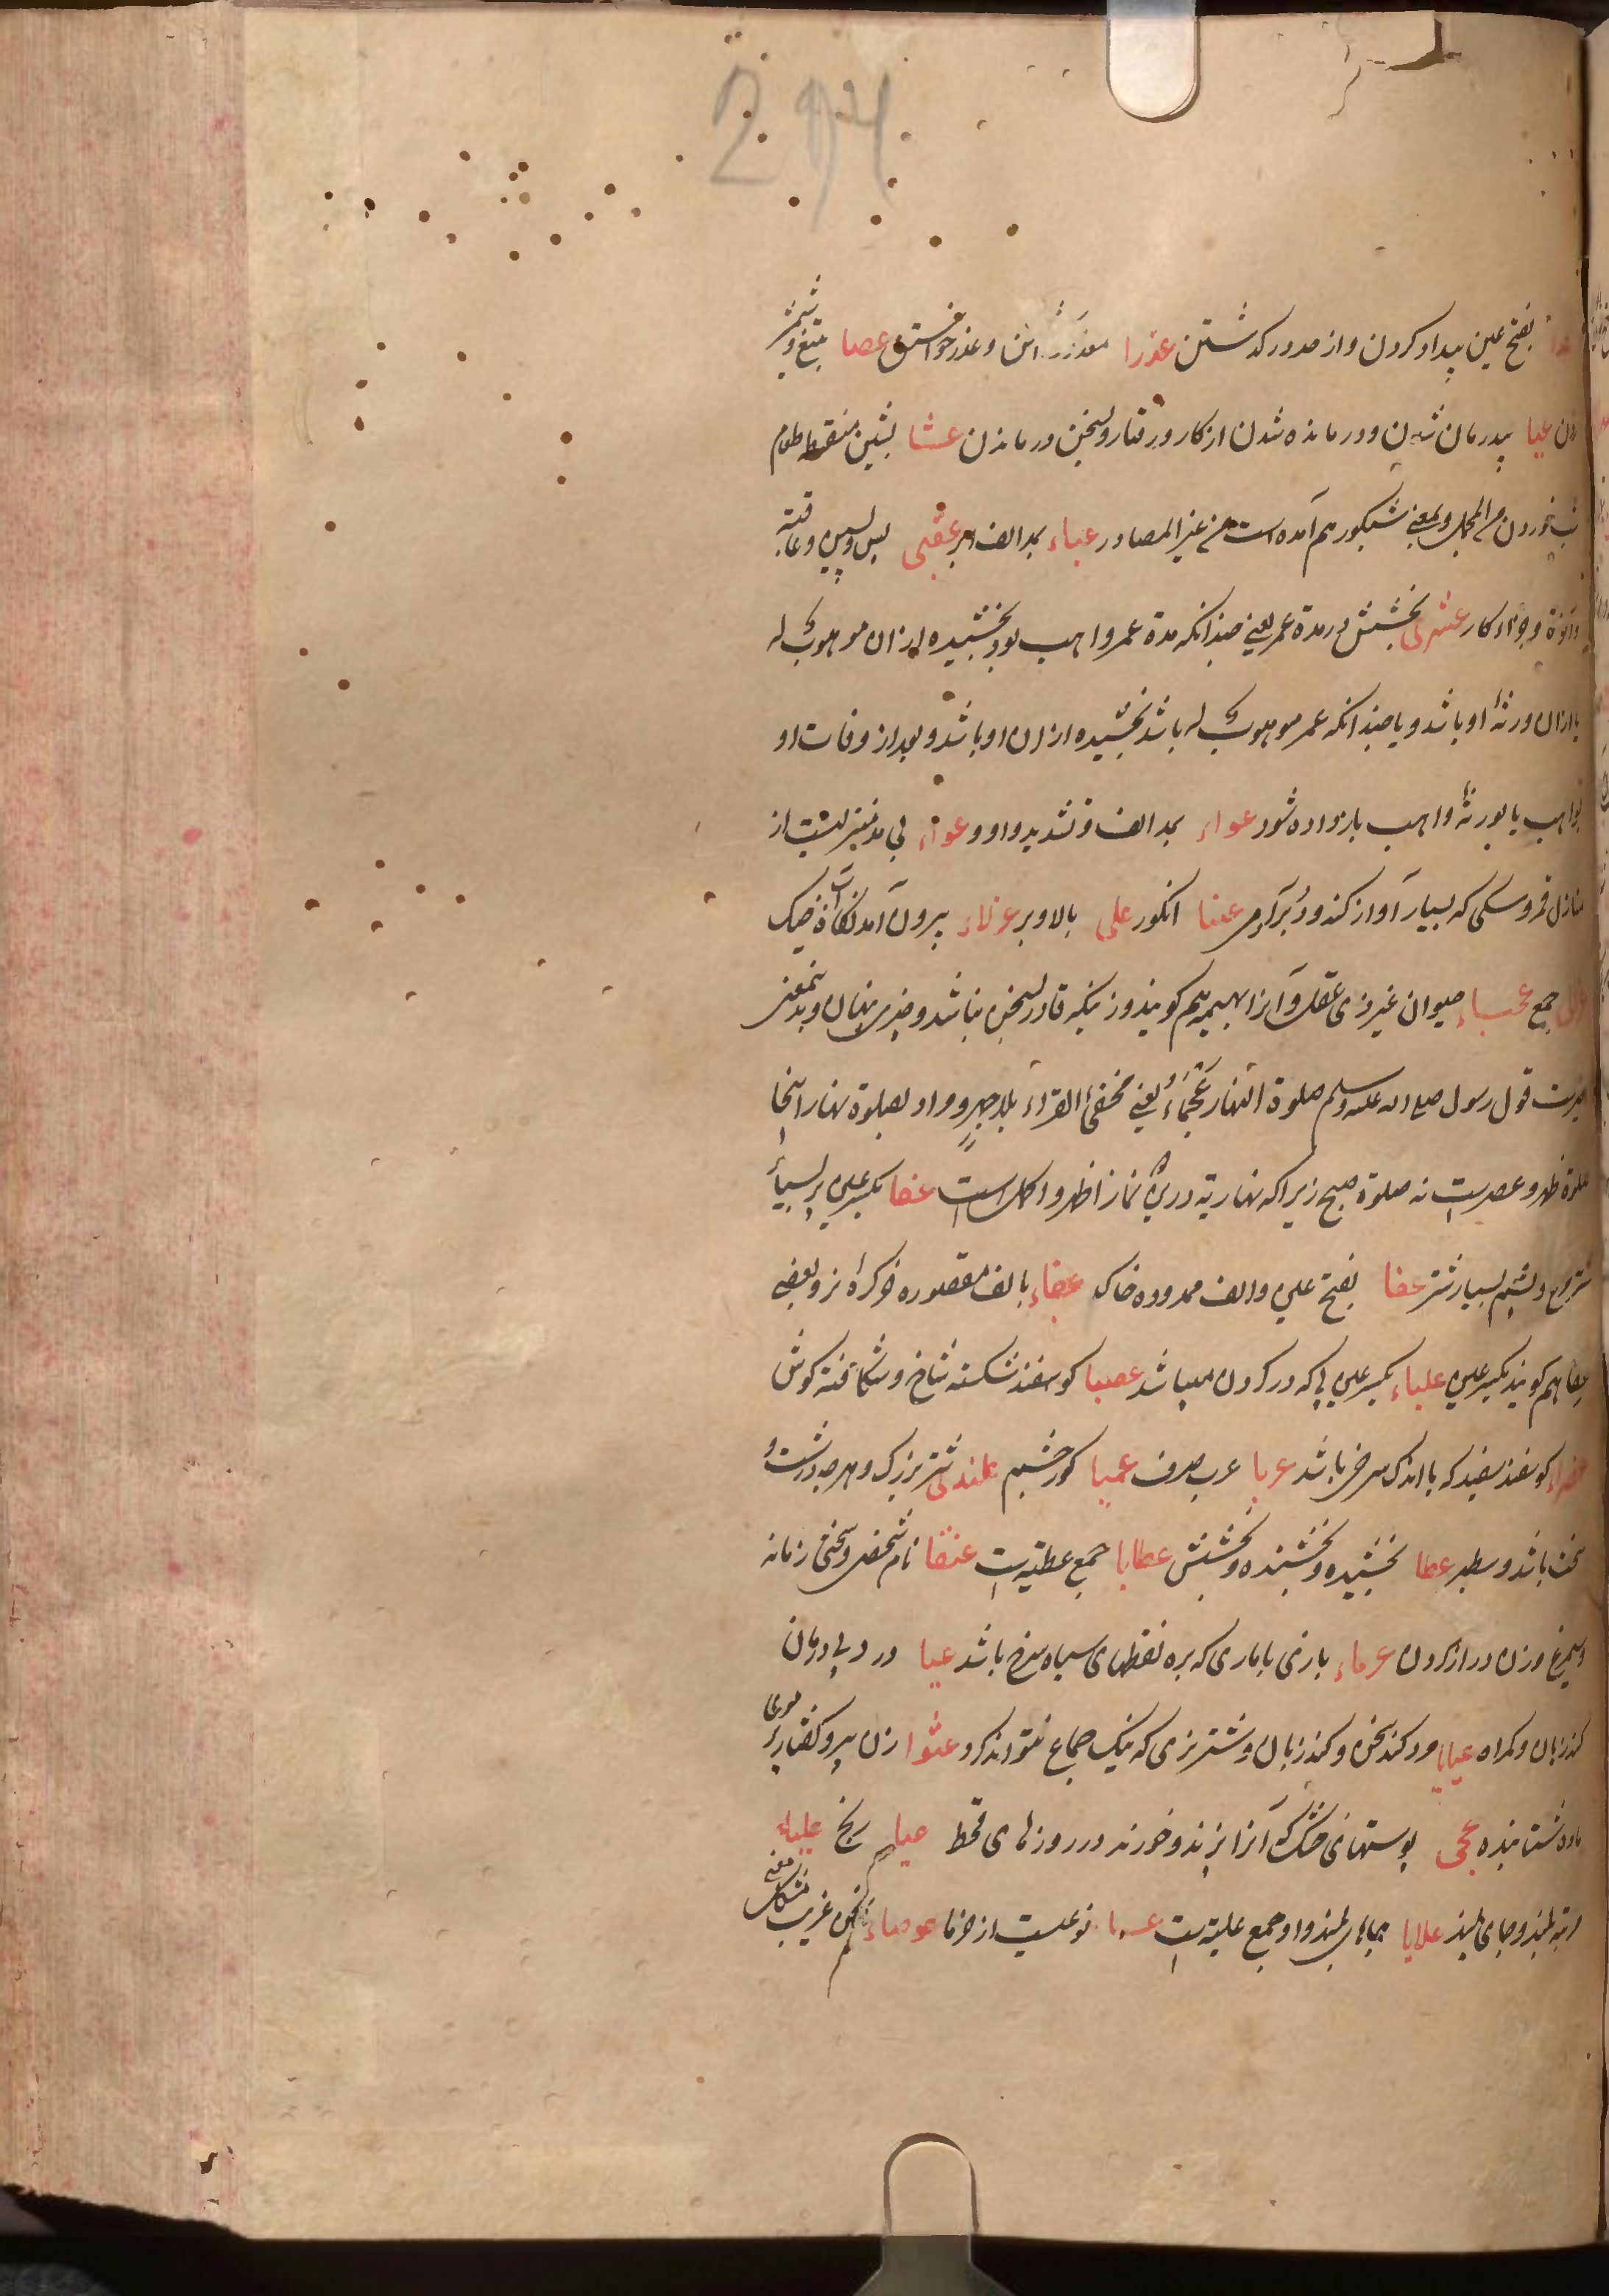 274
بفتح عین بیداد کردن و از حد درگذشتن عذرا معذور داشتن و عذر خواستن عصا بتیغ و شمشیر
زدن عیا بیدرمان شدن و درمانده شدن از کار و رفتار و بسخن درماندن عشا بشین منقوطه طعام
شب خوردن من المجمل و بمعنی شبکور هم آمده است من غیر المصادر عباء بمد الف ابر عقبی پس و پسین و عاقبة
و آخرة و جزاء کار عمری بخشش در مدة عمر یعنی چندانکه مدة عمر واهب بود بخشیده از ان موهوب له
یا ازان ورثهٔ او باشد و یا چندانکه عمر موهوب له باشد بخشیده ازان او باشد و بعد از وفات او
بواهب یا بورثهٔ واهب باز داده شود عواء بمد الف و تشدید واو و عواء بی مد منزلیست از
منازل قمر و سکی که بسیار آواز کند و دبر آدمی عنبا انکور علی بالا و بر عزلاء بیرون آمدنگاه آب از خیک
عزالی جمع عجماء حیوان غیر ذی عقل و آنرا بهیمه هم کویند و زنیکه قادر بسخن نباشد و چیزی پنهان و بدینمعنی
خبرست قول رسول صلی الله علیه وسلم صلوة النهار عجماء یعنی مخفی القراءة بلا جهر و مراد بصلوة نهار اینجا
صلوة ظهر و عصر ست نه صلوة صبح زیرا که نهاریة درین نماز اظهر و اکمل است عفا بکسر عین پر بسیار
شتر مرغ و پشم بسیار شتر عفا بفتح عین و الف ممدوده خاک عفاء بالف مقصوره خر کرهٔ نر و بعضی
عفا هم کویند بکسر عین علباء بکسر عین پی که در کردن میباشد عضبا کوسفند شکسته شاخ و شکافته کوش
عفراء کوسفند سفید که باندک سرخی باشد عربا عرب صرف عمیا کور چشم علندی شتر بزرک و هر چه درشت و
سخت باشد و سطبر عطا بخشیده و بخشنده و بخشش عطایا جمع عطیه است عنقا نام شخصی و سختی زمانه
و سیمرغ و زن دراز کردن عرماء بازی یا ماری که بره نقطهای سیاه سرخ باشد عیا درد بی درمان
کند زبان و کمراه عیایا مرد کند سخن و کند زبان و شتر نری که نیک جماع نتواند کرد عثوا زن پیر و کفتار پر موی
ماده شتابنده عجی پوستهای خشک که آنرا پزند و خورند در روزهای قحط عیا رنج علیاء
مرتبه بلند و جای بلند علایا جایهای بلند و او جمع علیة است عسا نوعیست از خرما عوصاء سخن غریب مشکل معنی